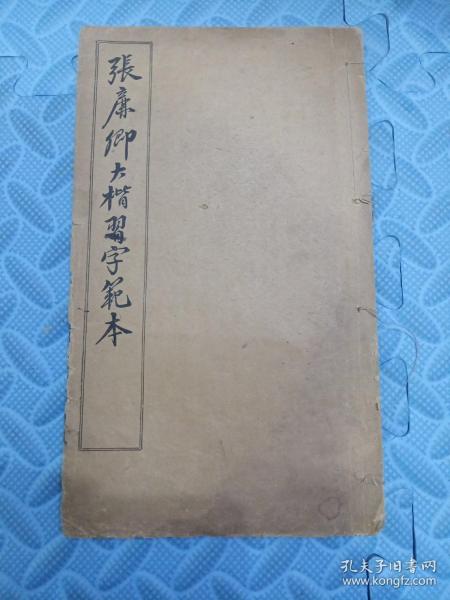 張廉卿大楷習字範本
孔夫子旧书网
www.kongfz.com